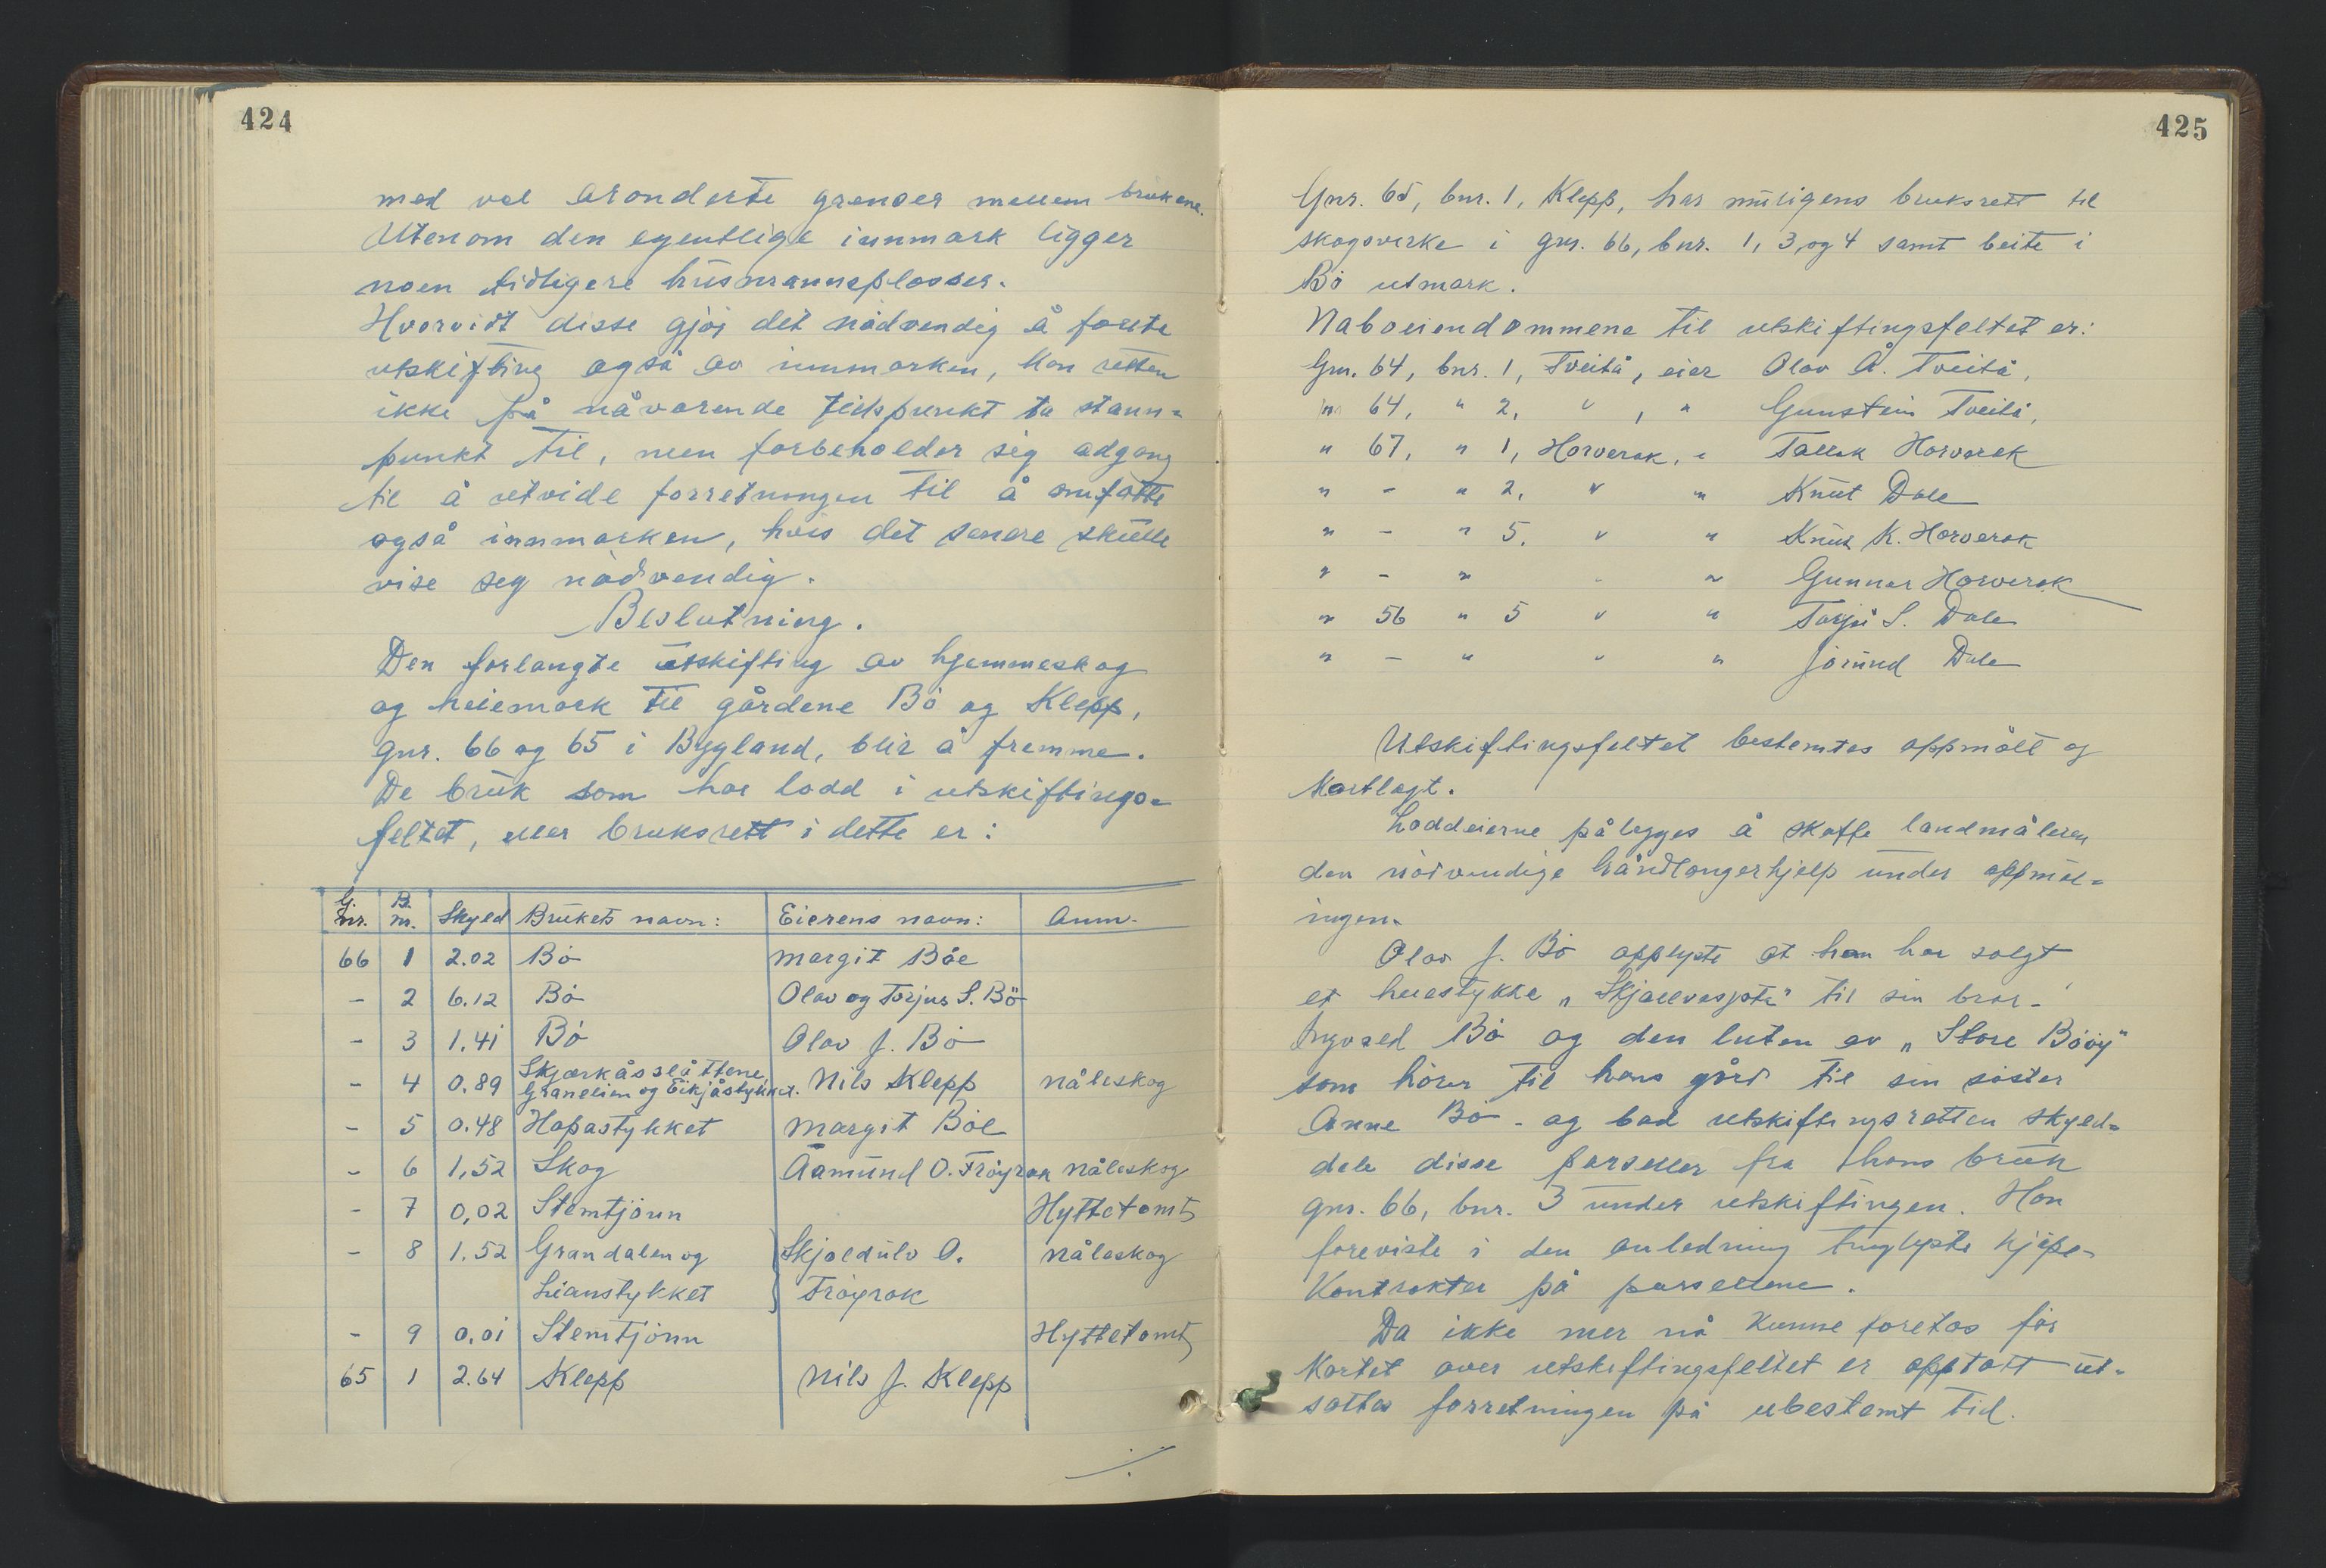 424
med vel aronderte grenser mellem brukene.
Utenom den egentlige innmark ligger
noen tidligere husmannsplasser.
Hvorvidt disse gjør det nødvendig å foreta
utskifting også av innmarken, kan retten
ikke på nåværende tidspunkt ta stann-
punkt til, men forbeholder sig adgang
til å utvide forretningen til å omfatte
også innmarken, hvis det senere skulle
vise seg nødvendig.
Beslutning.
Den forlangte utskifting av hjemmeskog
og heiemark til gårdene Bø og Klepp,
gnr. 66 og 65 i Bygland, blir å fremme.
De bruk som har lodd i utskiftings-
feltet, eller bruksrett i dette er:
G. nr. B. nr. Skyld Brukets navn: Eierens navn: Anm.
66 1 2.02 Bø Margit Bøe
- 2 6.12 Bø Olav og Torjus S. Bö
- 3 1.41 Bø Olav J. Bø
- 4 0.89 Skjærkåsslåttene, Graneien og Eikjåstykket. Nils Klepp nåleskog
- 5 0.48 Hapastykket Margit Bøe
- 6 1,52 Skog Åamund O. Frøyrak nåleskog
- 7 0,02 Stemtjønn Hyttetomt
- 8 1.52 Grandalen og Skjoldulv O. nåleskog
Lianstykket Frøyrak
- 9 0.01 Stemtjønn Hyttetomt
65 1 2.64 Klepp Nils J. Klepp
./.
425
Gnr. 65, bnr. 1, Klepp, har muligens bruksrett til
skogsvirke i gnr. 66, bnr. 1, 3, og 4 samt beite i
Bø utmark.
Naboeiendommene til utskiftingsfeltet er:
Gnr. 64, bnr. 1, Tveitå, eier Olav Å. Tveitå,
" 64, " 2, " , " Gunstein Tveitå,
" 67, " 1, Horverak, " Tallak Horverak
" - " 2, " " Knut Dale
" - " 5. " " Knut K. Horverak
" - " " " Gunnar Horverak
" 56 " 5 " " Torjü S. Dale
" - " " " Jorund Dale
Utskiftingsfeltet bestemtes oppmålt og
kartlagt.
Loddeierne pålegges å skaffe landmåleren
den nødvendige håndlangerhjelp under oppmål-
ingen.
Olav J. Bø opplyste at han har solgt
et heiestykke "Skjællvasspta" til sin bror -
Ingvald Bø og den luten av "Store Bøøy"
som hører til hans gård til sin søster
Anne Bø - og bad utskiftingsretten skyld-
dele disse parseller fra hans bruk
gnr. 66, bnr. 3 under utskiftingen. Han
foreviste i den anledning tinglyste kjøpe-
kontrakter på parsellene.
Da ikke mer nå kunne foretas før
kartet over utskiftingsfeltet er opptatt ut-
sattes forretningen på ubestemt tid.